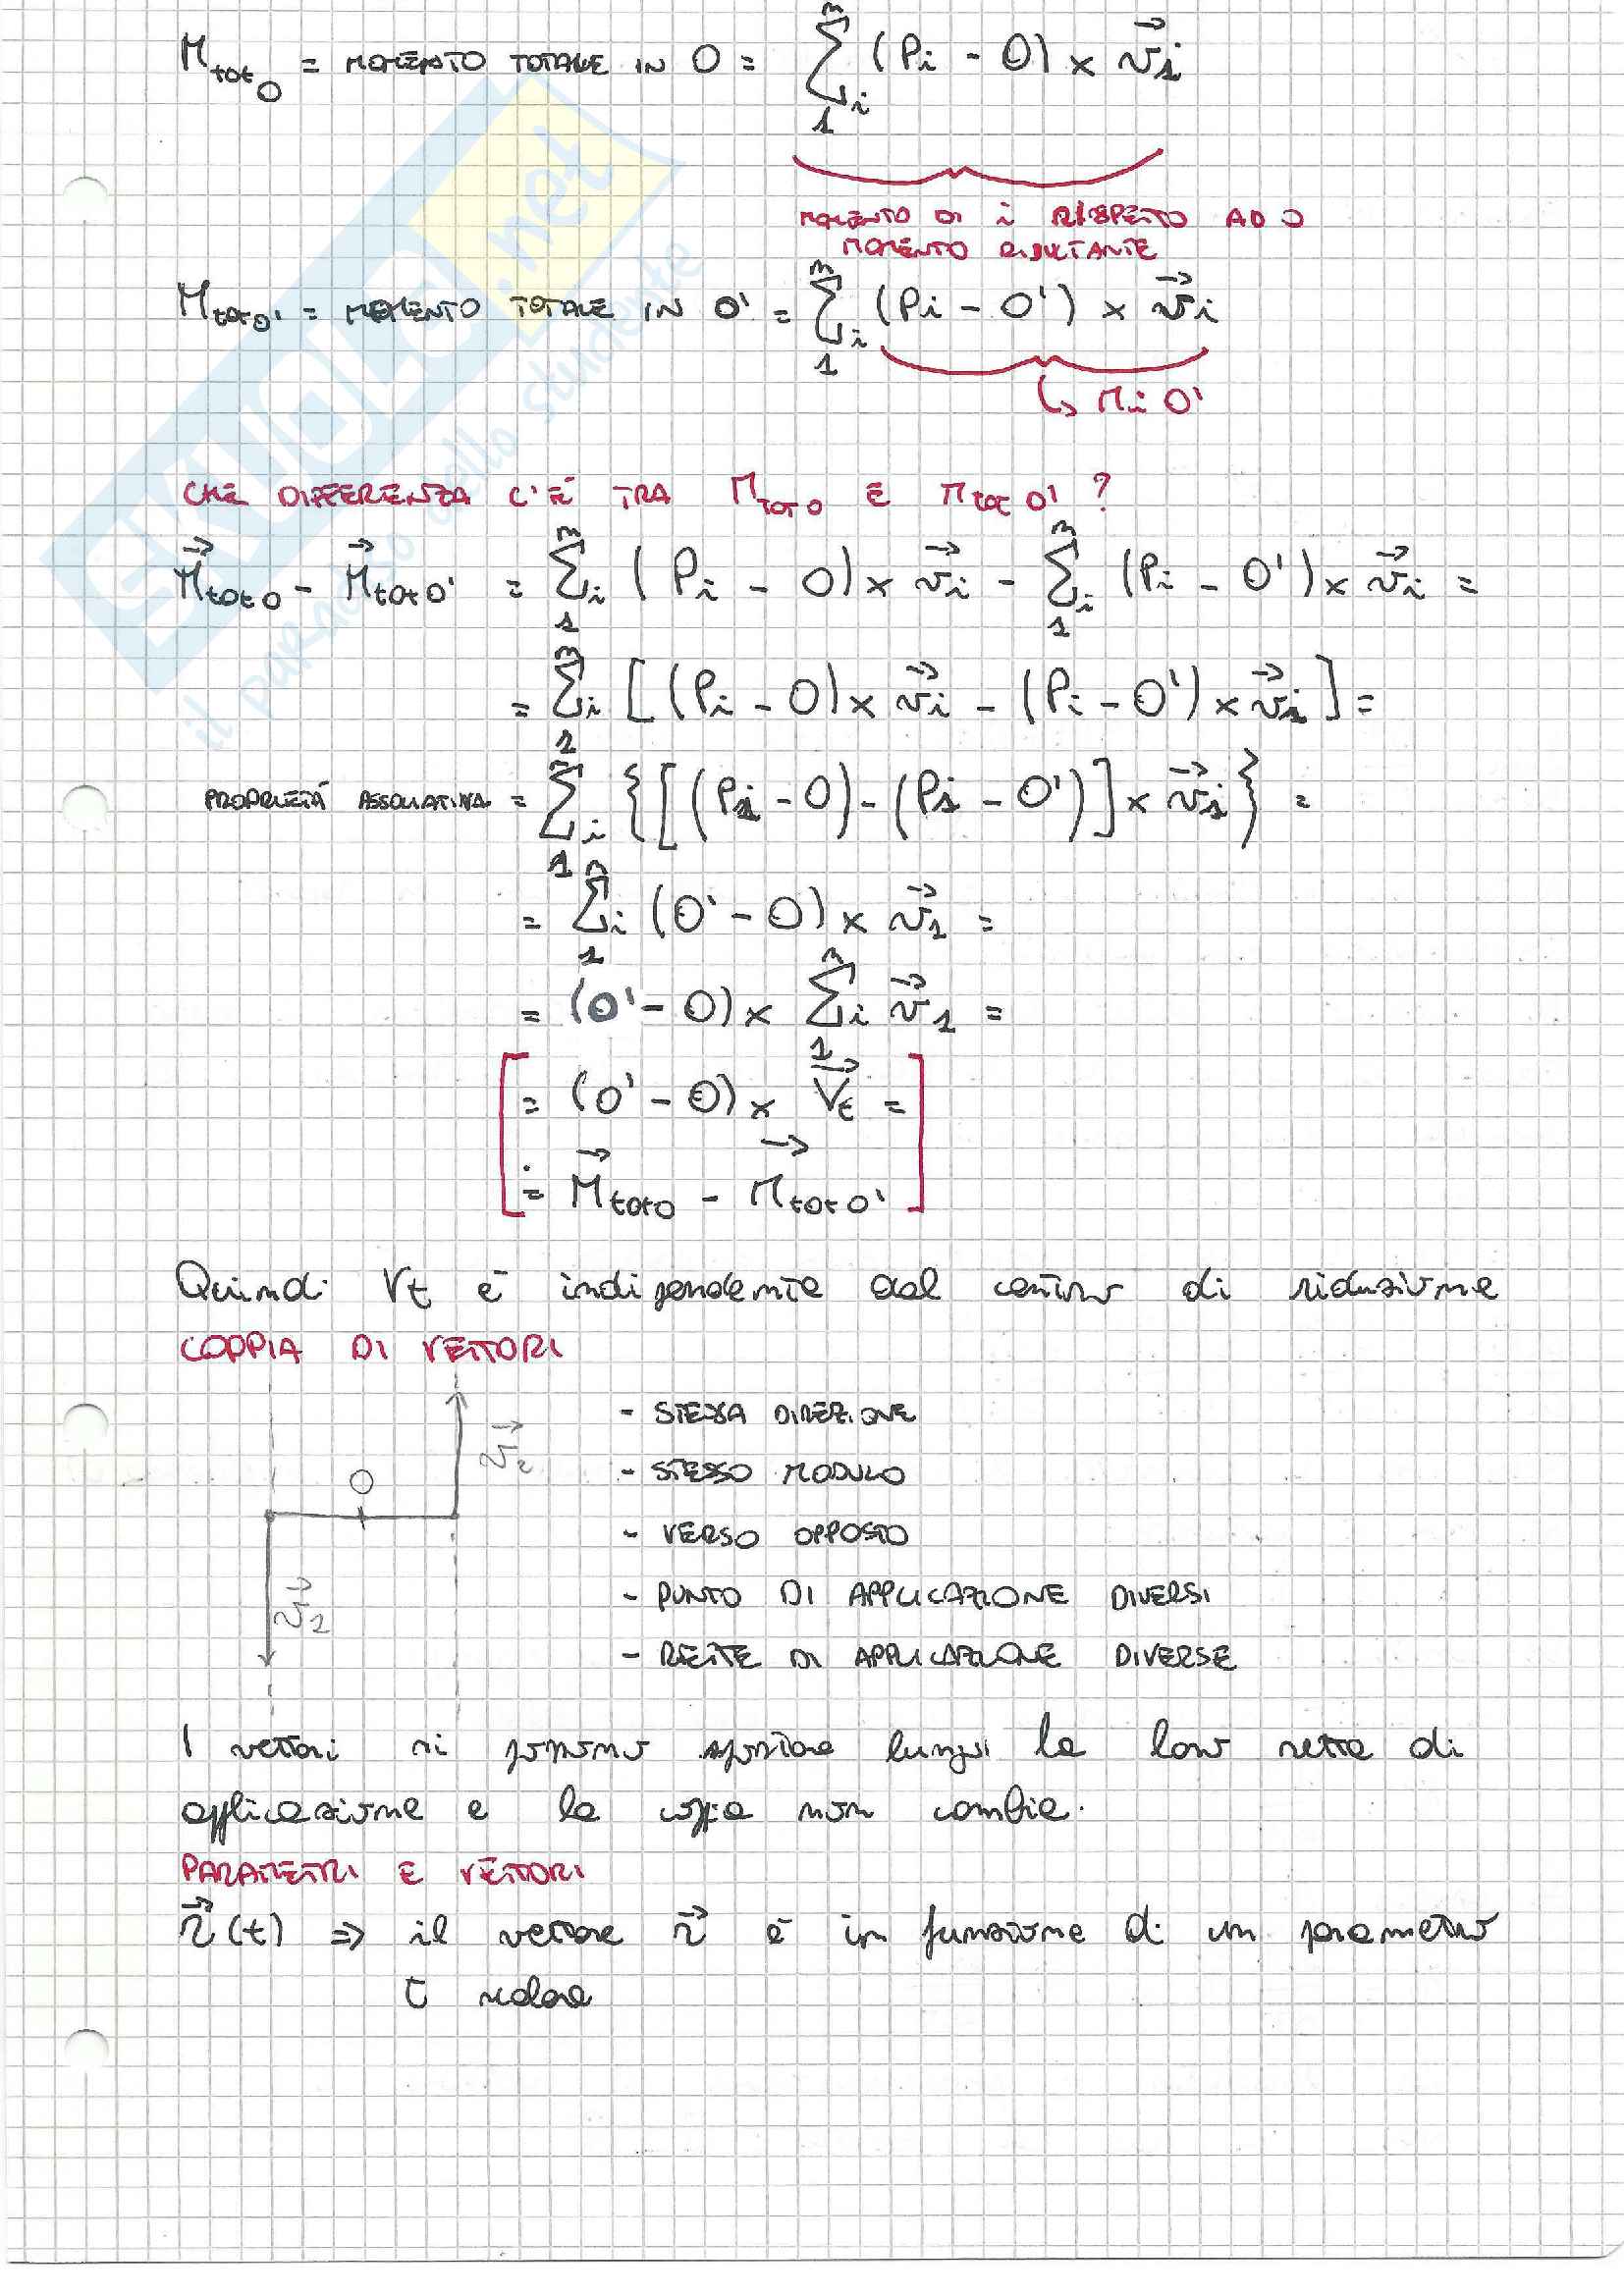 M_tot_O = MOMENTO TOTALE IN O = Σ_i (Pi - O) × v⃗i
n
1
MOMENTO DI i RISPETTO AD O
MOMENTO RISULTANTE
M_totO' = MOMENTO TOTALE IN O' = Σ_i (Pi - O') × v⃗i
n
1
↳ Mi O'
CHE DIFFERENZA C'È TRA M_totO E M_totO' ?
M⃗_totO - M⃗_totO' = Σ_i (Pi - O) × v⃗i - Σ_i (Pi - O') × v⃗i =
= Σ_i [(Pi - O) × v⃗i - (Pi - O') × v⃗i] =
PROPRIETÁ ASSOCIATIVA = Σ_i {[(Pi - O) - (Pi - O')] × v⃗i} =
= Σ_i (O' - O) × v⃗1 =
= (O' - O) × Σ_i v⃗1 =
= (O' - O) × V⃗t =
= M⃗_totO - M⃗_totO'
Quindi Vt è indipendente dal centro di riduzione
COPPIA DI VETTORI
- STESSA DIREZIONE
v⃗2
- STESSO MODULO
O
- VERSO OPPOSTO
- PUNTO DI APPLICAZIONE DIVERSI
v⃗1
- RETTE DI APPLICAZIONE DIVERSE
I vettori si possono spostare lungo la loro retta di
applicazione e la coppia non cambia.
PARAMETRI E VETTORI
r⃗(t) ⇒ il vettore r⃗ è in funzione di un parametro
t scalare
SKUOLA.net
il paradiso dello studente